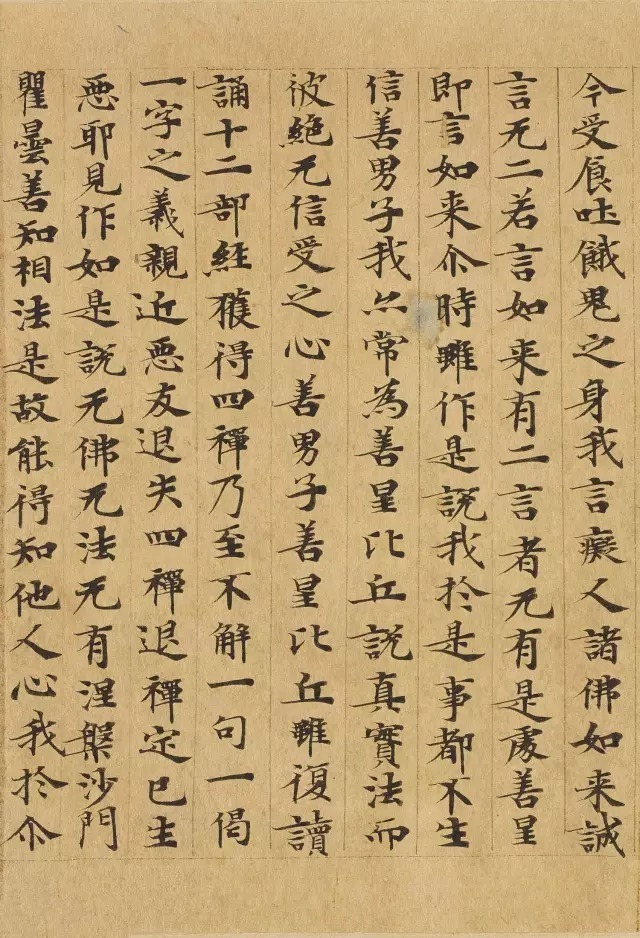 今受食吐餓鬼之身我言癡人諸佛如来誠
言无二若言如来有二言者无有是處善星
即言如来尒時雖作是説我於是事都不生
信善男子我亦常為善星比丘説真實法而
彼絶无信受之心善男子善星比丘雖復讀
誦十二部経獲得四禪乃至不解一句一偈
一字之義親近惡友退失四禪退禪定已生
惡耶見作如是説无佛无法无有涅槃沙門
瞿曇善知相法是故能得知他人心我於尒